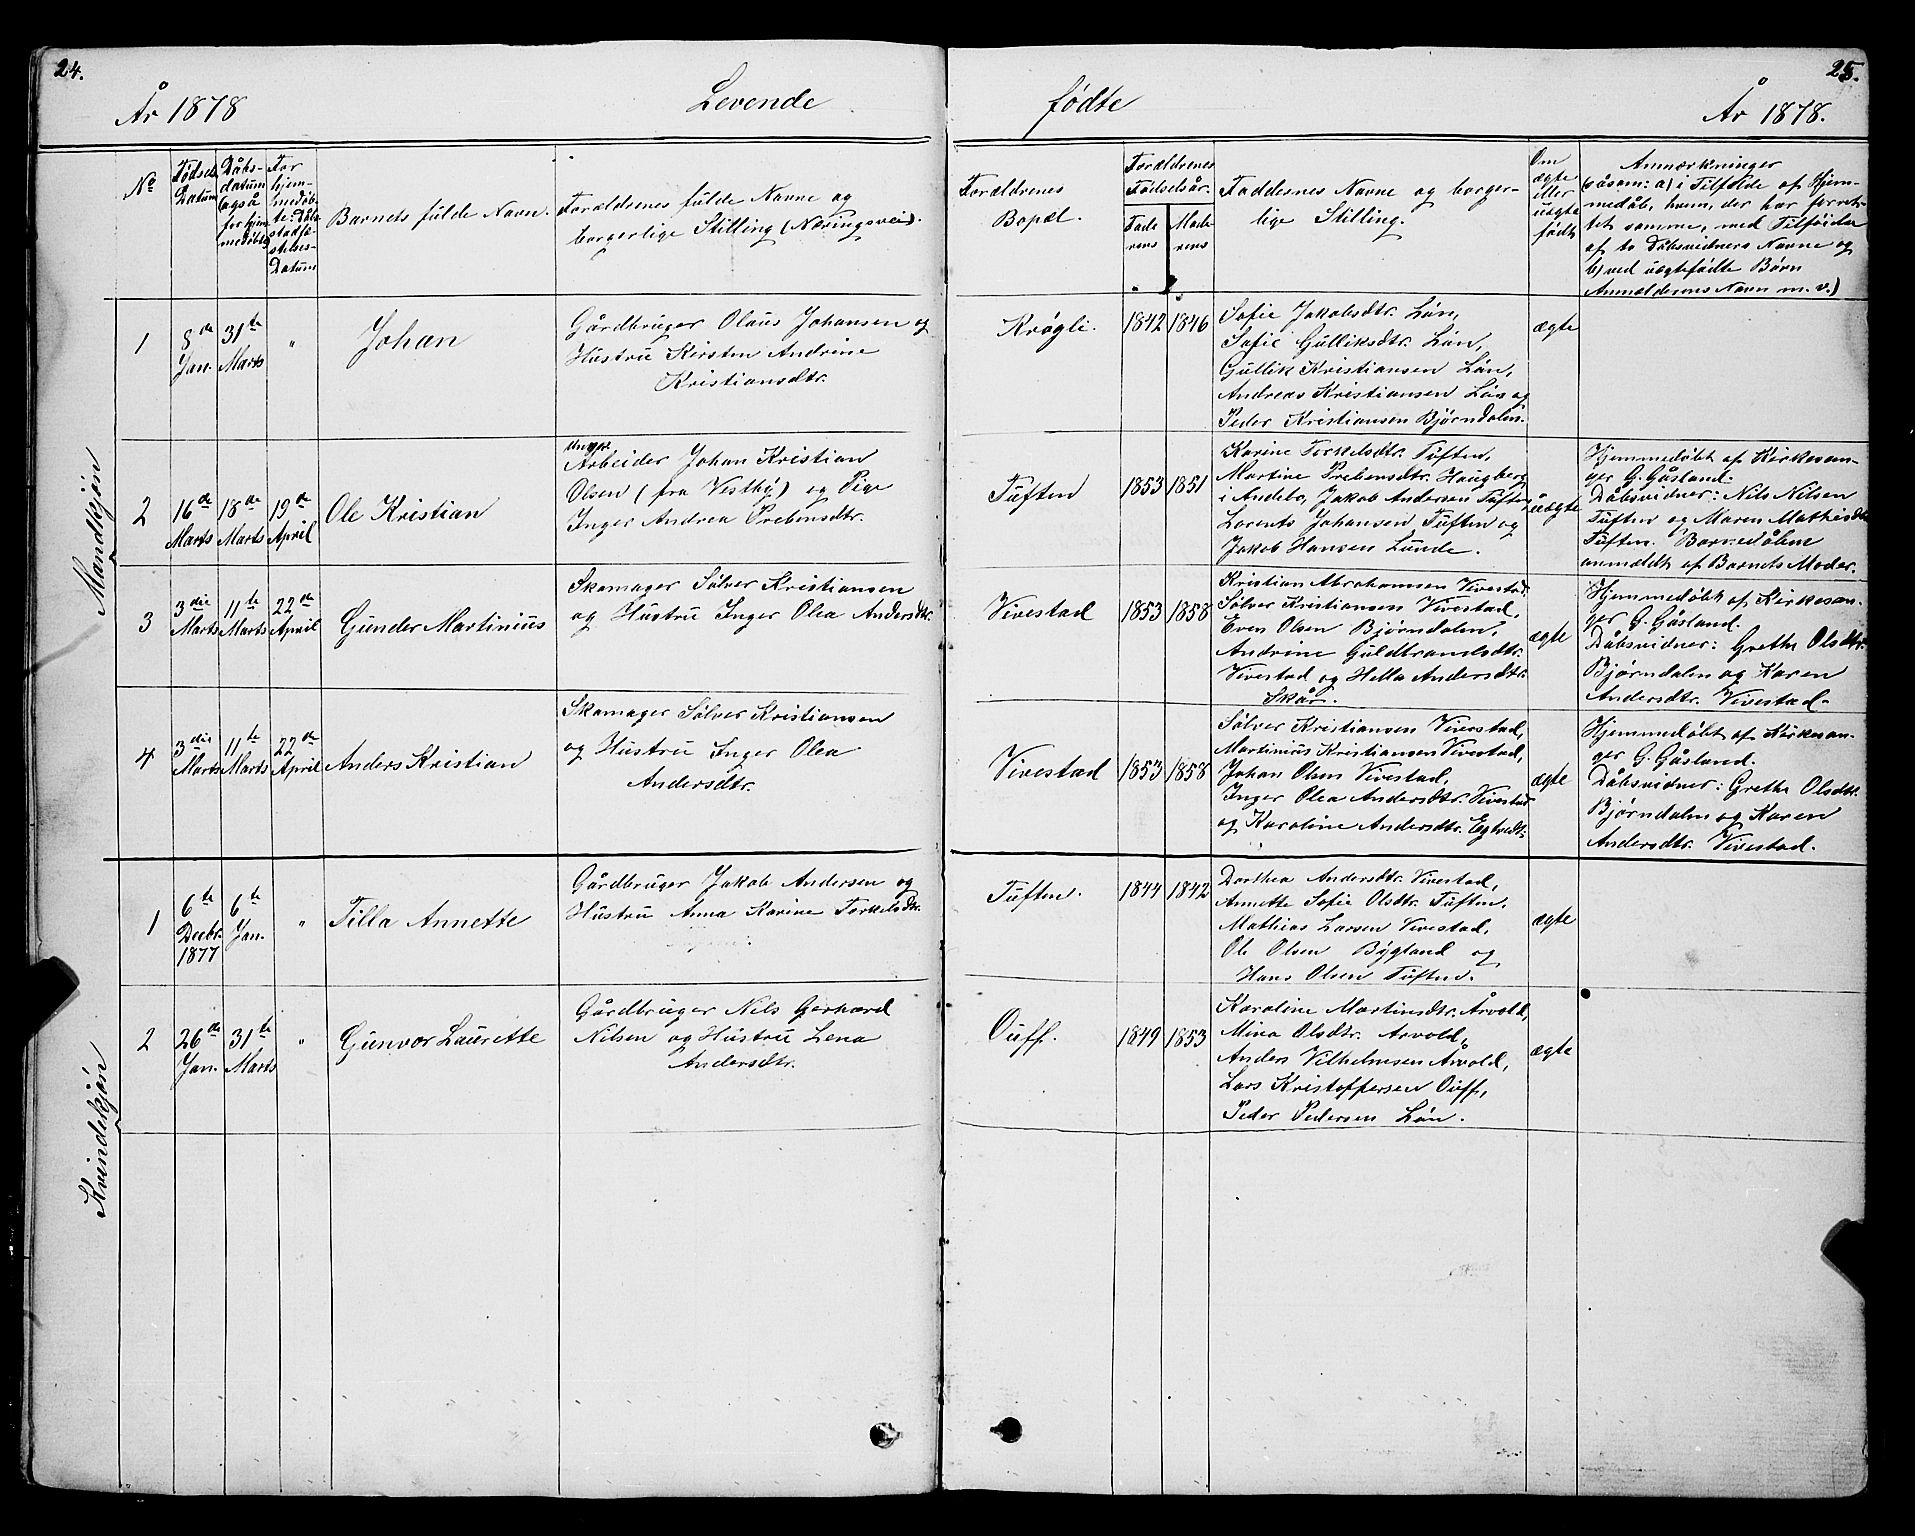 24.
År 1878
Levende
No
Fødsels
Datum
Dåbs-
datum
(også
for hjem
medøbte)
For
hjem-
medøb-
te: Dåbs
stadfæ-
stelses-
Datum
Barnets fulde Navn.
Forældrenes fulde Navne og
borgerlige Stilling (Næringsvei).
Mandkjøn
1
8de
Jan.
31te
Marts
"
Johan
Gårdbruger Olaus Johansen og
Hustru Kirsten Andrine
Kristiansdtr.
2
16de
Marts
18de
Marts
19de
April
Ole Kristian
Ungkr.
Arbeider Johan Kristian
Olsen (fra Vestby) og Pige
Inger Andrea Prebensdtr.
3
3die
Marts
11te
Marts
22de
April
Gunder Martinius
Skomager Sølver Kristiansen
og Hustru Inger Olea Andersdtr.
4
3die
Marts
11te
Marts
22de
April
Anders Kristian
Skomager Sølver Kristiansen
og Hustru Inger Olea
Andersdtr.
Kvindekjøn
1
6te
Decbr.
1877
6te
Jan.
"
Tilla Annette
Gårdbruger Jakob Andersen og
Hustru Anna Karine Torkelsdtr.
2
26de
Jan.
31te
Marts
"
Gunvor Laurette
Gårdbruger Nils Gerhard
Nilsen og Hustru Lena
Andersdtr.
25.
fødte
År 1878.
Forældrenes
Bopæl.
Forældrenes
Fødselsår.
Fade
rens
Mode
rens
Faddernes Navne og borger-
lige Stilling.
Om
ægte
eller
uægte
født
Anmærkninger
(såsom: a) i Tilfælde af Hjem-
medåb, hvem, der har forret-
tet samme, med Tilføielse
af to Dåbsvidners Navne og
b) ved uægtefødte Børn
Anmelderens Navn m. v.)
Krøgli.
1842
1846
Sofie Jakobsdtr. Løn,
Sofie Gulliksdtr. Løn,
Gullik Kristiansen Løn,
Andreas Kristiansen Løn og
Peder Kristiansen Bjørndalen.
ægte
Tuften
1853
1851
Karine Torkelsdtr. Tuften,
Martine Prebensdtr. Haugberg
i Andebo, Jakob Andersen Tuften,
Lorents Johansen Tuften og
Jakob Hansen Lunde.
uægte
Hjemmedøbt af Kirkesan-
ger G. Gåsland.
Dåbsvidner: Nils Nilsen
Tuften og Maren Mathisdtr.
Tuften. Barnedåben
anmeldt af Barnets Moder.
Vivestad
1853
1858
Kristian Abrahamsen Vivestad
Sølver Kristiansen Vivestad,
Even Olsen Bjørndalen,
Andrine Guldbrandsdtr.
Vivestad og Hella Andersdtr.
Skår.
ægte
Hjemmedøbt af Kirkesan-
ger G. Gåsland.
Dåbsvidner: Grethe Olsdtr.
Bjørndalen og Karen
Andersdtr. Vivestad.
Vivestad
1853
1858
Sølver Kristiansen Vivestad,
Martinius Kristiansen Vivestad,
Johan Olsen Vivestad,
Inger Olea Andersdtr. Vivestad
og Karoline Andersdtr. Egtvedt.
ægte
Hjemmedøbt af Kirkesan-
ger G. Gåsland.
Dåbsvidner: Grethe Olsdtr.
Bjørndalen og Karen
Andersdtr. Vivestad.
Tuften.
1844
1842
Dorthea Andersdtr. Vivestad,
Annette Sofie Olsdtr. Tuften.
Mathias Larsen Vivestad,
Ole Olsen Bygland og
Hans Olsen Tuften.
ægte
Ouff.
1849
1853
Karoline Martinsdtr. Årvold,
Mina Olsdtr. Arvold,
Anders Vilhelmsen Årvold,
Lars Kristoffersen Ouff,
Peder Pedersen Løn.
ægte